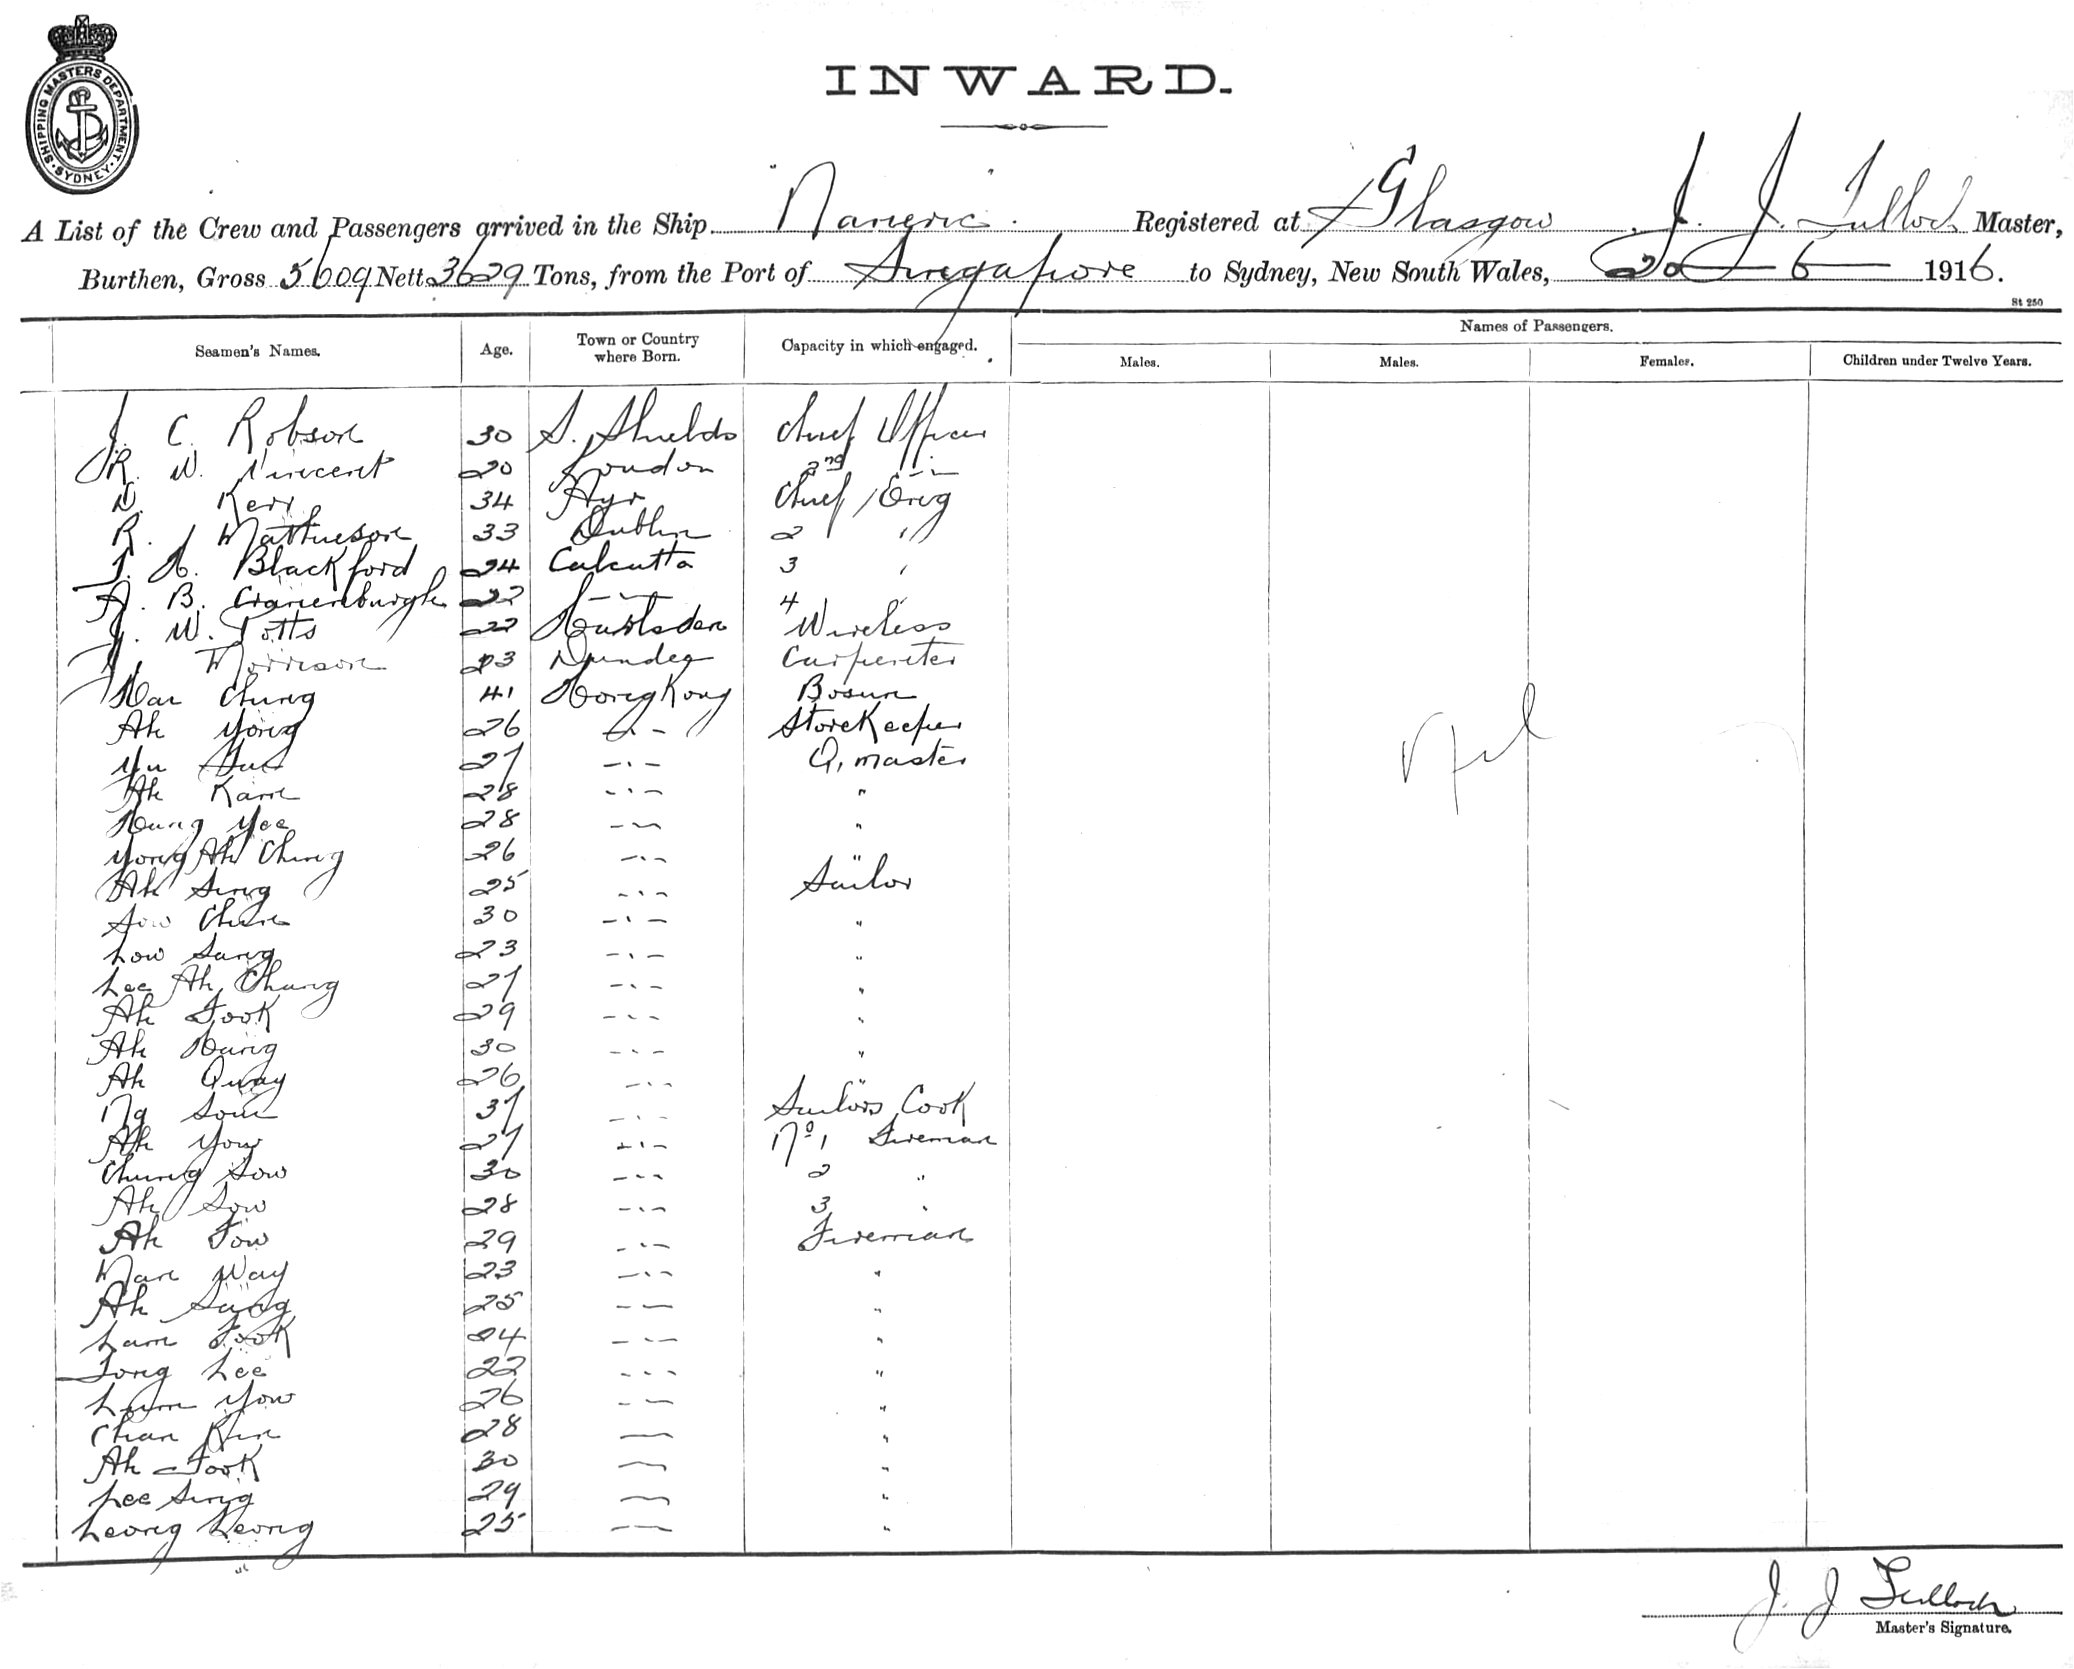 SHIPPING MASTERS DEPARTMENT. SYDNEY
INWARD.
A List of the Crew and Passengers arrived in the Ship "Naneric" Registered at Glasgow, J. J. Tulloch Master,
Burthen, Gross 5609 Nett 3629 Tons, from the Port of Singapore to Sydney, New South Wales, 20 - 6 - 1916.
St 250
Seamen's Names. Age. Town or Country where Born. Capacity in which engaged. Names of Passengers.
Males. Males. Females. Children under Twelve Years.
J. C. Robson 30 S. Shields Chief Officer
R. W. Vincent 20 London 2nd —"—
D. Kerr 34 Ayr Chief Eng
R. Mathieson 33 Dublin 2 "
J. H. Blackford 24 Calcutta 3 "
A. B. Cranenburgh 22 —"— 4 "
J. W. Potts 22 Wireless
J. Morrison 23 Dundee Carpenter
Chung 41 HongKong Bosun
Ah Yong 26 -"- StoreKeeper
Yu 27 -"- Q. master
Ah Kam 28 -"- "
Hung Yee 28 -"- "
Yong Ah Ching 26 -"- "
Ah Sing 25 -"- Sailor
Sow Chun 30 -"- "
Low Sang 23 -"- "
Lee Ah Chung 27 -"- "
Ah Fook 29 -"- "
Ah Hung 30 -"- "
Ah Quay 26 -"- "
Ng Som 37 -"- Sailors Cook
Ah Yow 27 -"- No 1 Fireman
Chung Sow 30 -"- 2 "
Ah Sow 28 -"- 3 "
Ah Fow 29 -"- Fireman
Man Way 23 -"- "
Ah Sang 25 -"- "
Lam Fook 24 -"- "
Tong Lee 22 -"- "
Lum Yow 26 -"- "
Chan Kin 28 — "
Ah Fook 30 — "
Lee Sing 29 — "
Leong Leong 25 — "
Nil
J. J. Tulloch
Master's Signature.